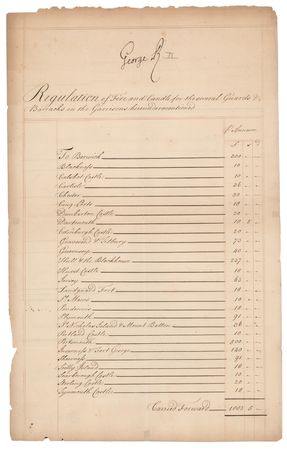 George R II
Regulation of Fire and Candle for the several Guards &
Barracks in the Garrisons hereundermentioned
To Berwick 200 - -
Blackness 10 - -
Calshot Castle 10 - -
Carlisle 26 - -
Chester 32 - -
Cinq Ports 10 - -
Dumbarton Castle 20 - -
Dartmouth 10 5 -
Edinburgh Castle 20 - -
Gravesend & Tilbury 73 - -
Guernsey 40 - -
Hull & the Blockhouse 227 - -
Hurst Castle 10 - -
Jersey 63 - -
Landguard Fort 10 - -
St. Maws 10 - -
Pendennis 10 - -
Plymouth 91 - -
St. Nicholas Island & Mount Batten 36 - -
Portland Castle 10 - -
Portsmouth 500 - -
Inverness & Fort George 140 - -
Sheerness 91 - -
Scilly Island 16 - -
Scarborough Castle 10 - -
Sterling Castle 20 - -
Tynmouth Castle 10 - -
Carried Forward 5 -